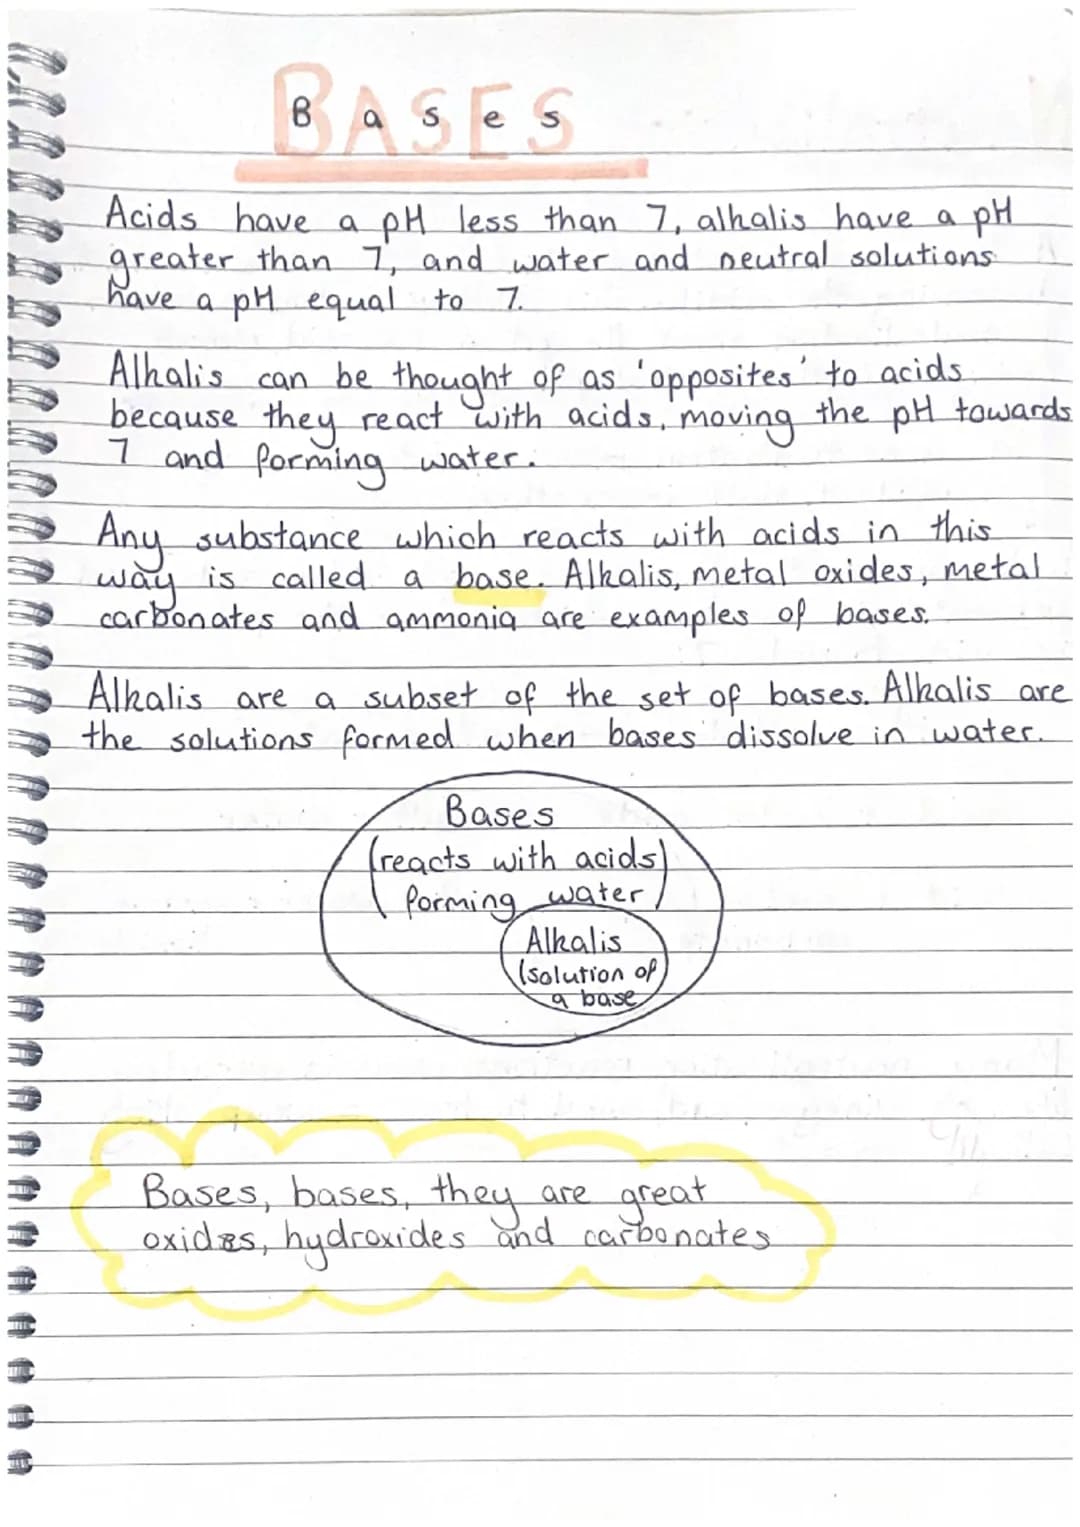 BASES
Bases
Acids have a pH less than 7, alkalis have a pH
greater than 7, and water and neutral solutions
have a pH equal to 7.
Alkalis can be thought of as 'opposites' to acids
because they react with acids, moving the pH towards
7 and forming water.
Any substance which reacts with acids in this
way is called a base. Alkalis, metal oxides, metal
carbonates and ammonia are examples of bases.
Alkalis are a subset of the set of bases. Alkalis are
the solutions formed when bases dissolve in water.
Bases
(reacts with acids)
forming water
Alkalis
(solution of)
a base
Bases, bases, they are great
oxides, hydroxides and carbonates